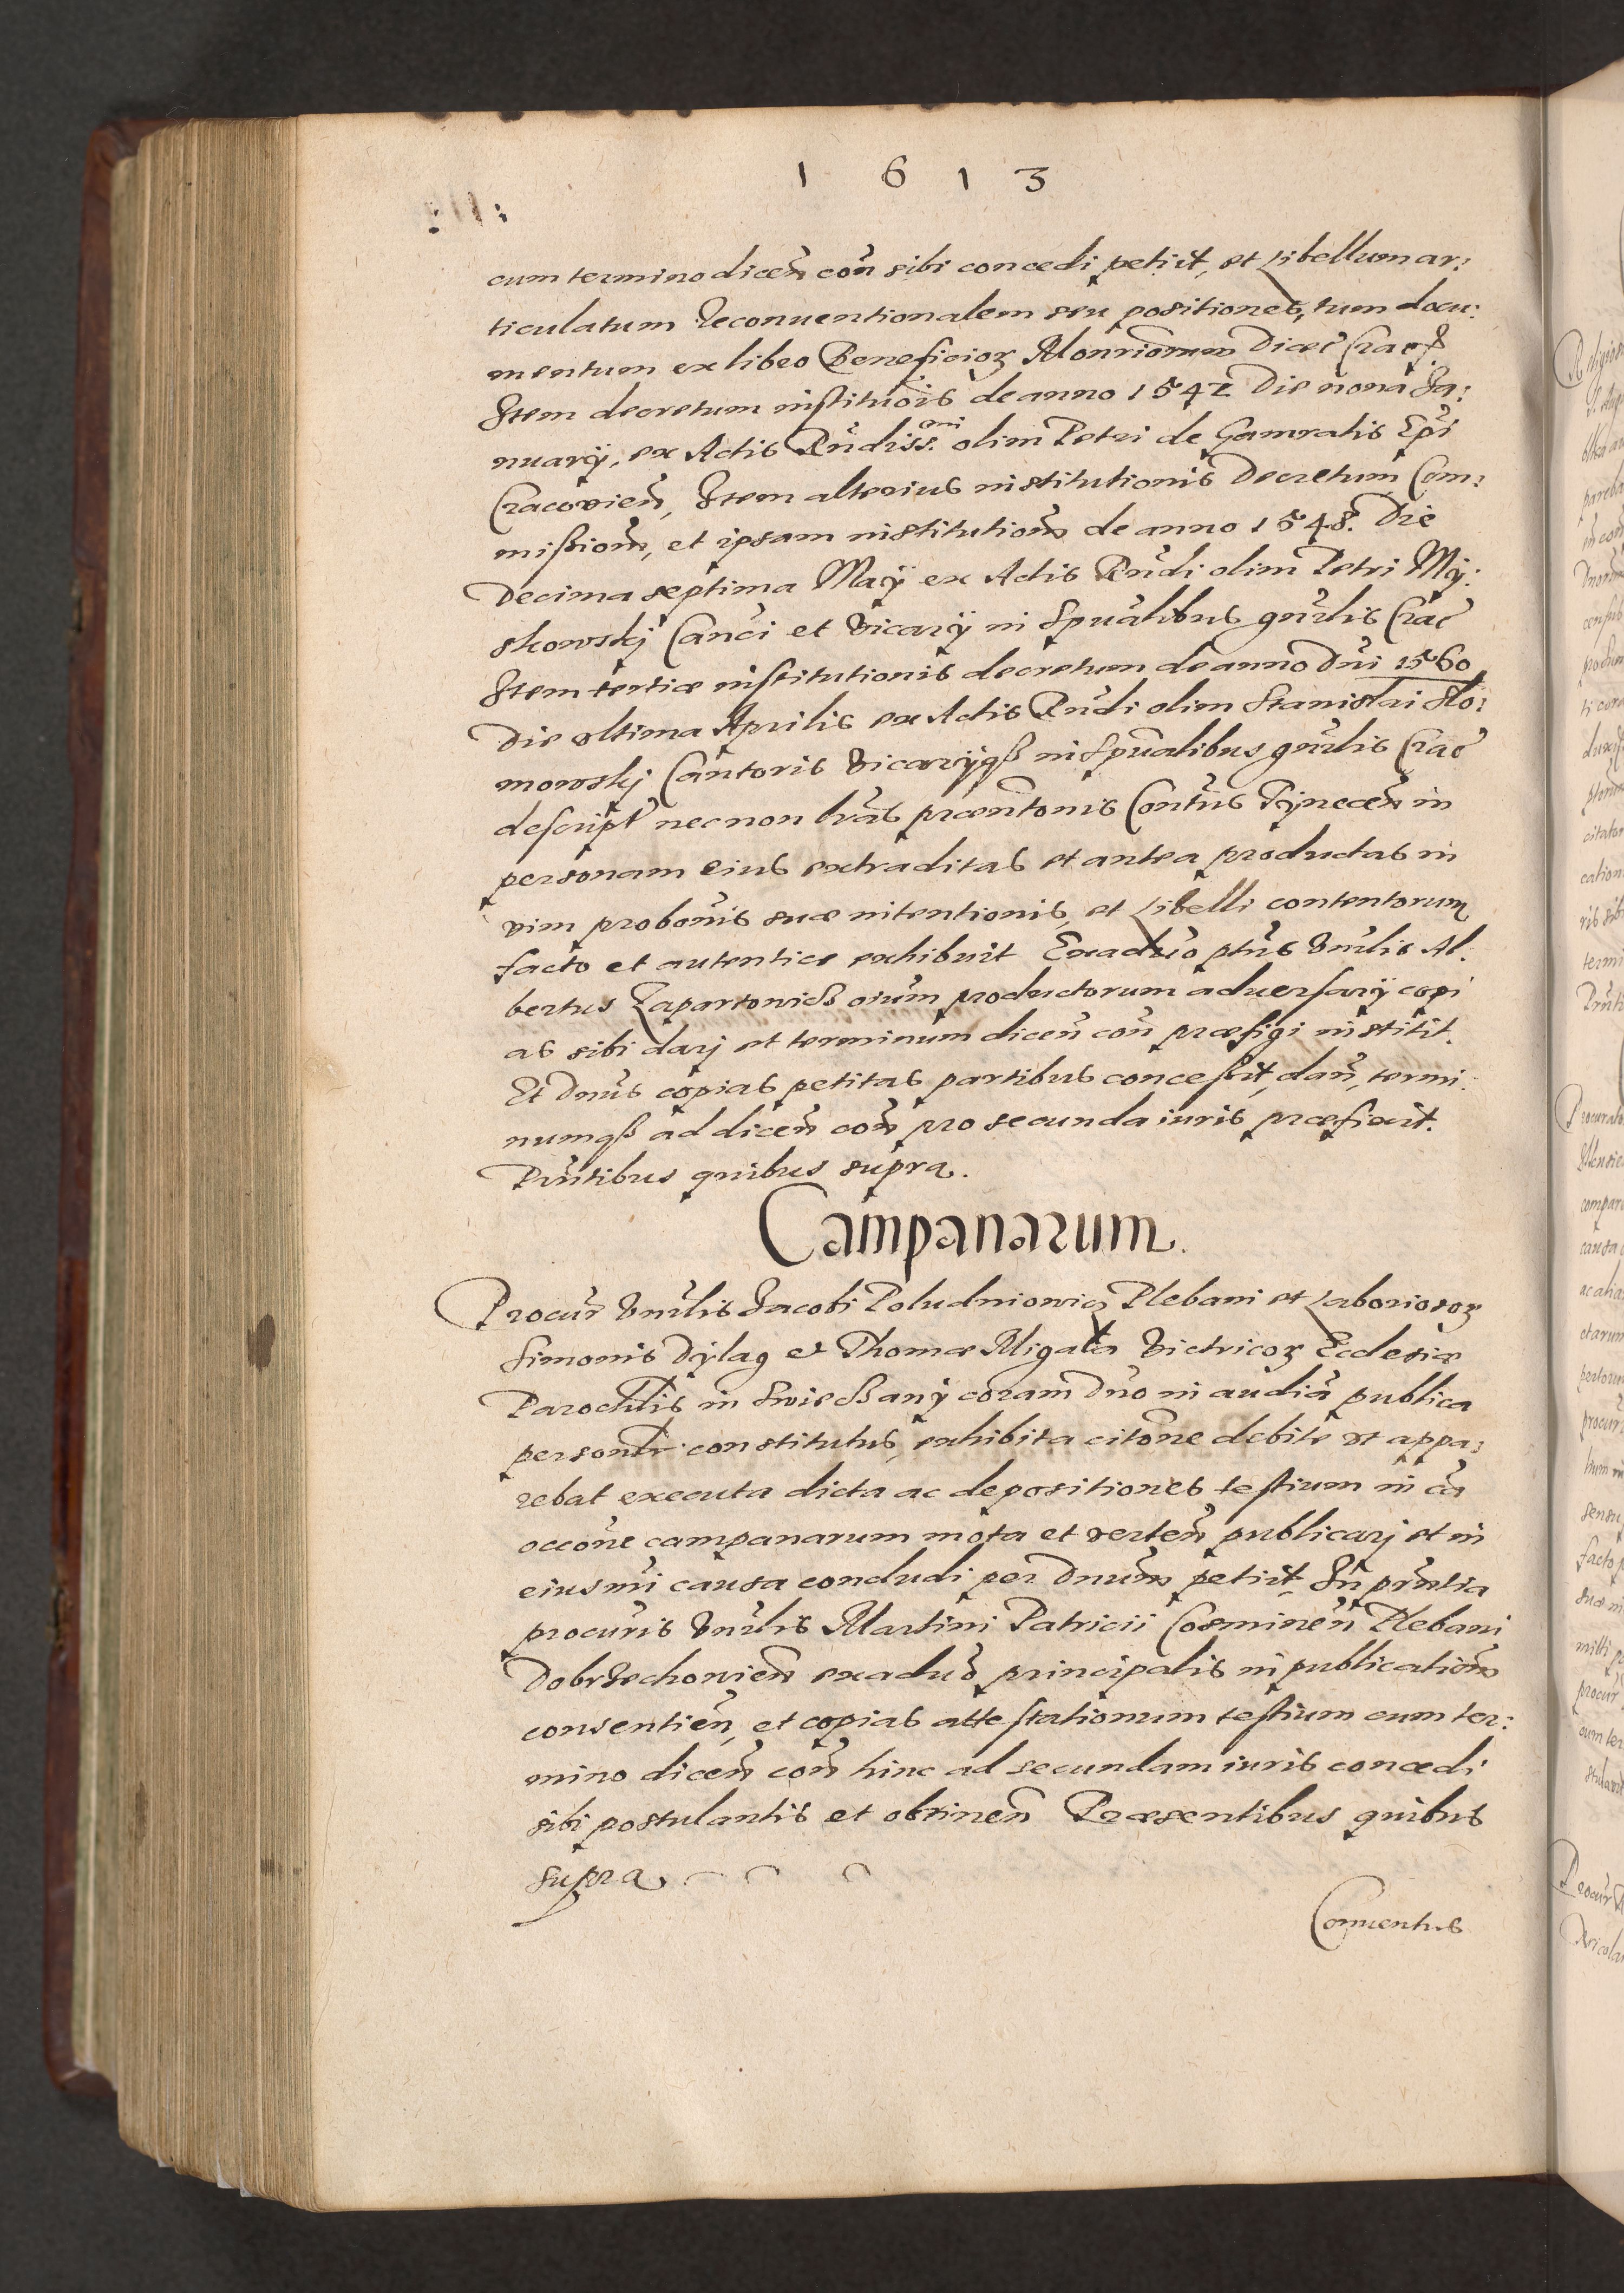 1 6 1 3
cum termino dicen̄ con̄ sibi concedi petiit, et Libellum ar:
ticulatum Reconuentionalem seu positiones, tum docu:
mentum ex libro Beneficioꝝ Dioec̄ Crac
Item decretum institūois de anno 1542 Die nona Ja:
nuarÿ, ex Actis Rn̄diss. olim Petri de Gamratis Ep̄i
Cracovien̄, Item alterius institutionis decretum Com:
mißion̄, et ipsam institution̄ de anno 1548. Die
decima septima Maÿ ex Actis Rn̄di olim Petri Mÿ:
skowskj Can̄ci et Vicarÿ in Spūalibus gn̄rlis Crac̄
Item tertiæ institutionis decretum de anno Dn̄i 1560
Die vltima Aprilis ex Actis Rn̄di olim Stanislai Slo:
mowskj Cantoris Vicarÿqß in Spūalibus gn̄rlis Crac̄
descript necnon lr̄as præn̄tonis Conūtus Tÿnecen̄ in
personam eius extraditas et antea productas in
vim probōnis suæ intentionis, et Libelli contentorum
facto et autentice exhibuit Ex aduo ptūs Vn̄rlis Al:
bertus Zapartowicß oīum productorum aduersarÿ copi
as sibi darj et terminum dicen̄ con̄ præfigi institit.
Et Dn̄us copias petitas partibus conceßit, dan̄, termi:
numqß ad dicen̄ con̄ pro secunda iuris præfixit.
Prn̄tibus quibus supra.
Campanarum.
Procūr Vn̄rlis Jacobi Poludniowicz Plebani et Laboriosoꝝ
Simonis Dÿlag et Thomæ Migała Victricoꝝ Ecclesiæ
Parochlis in SwieCßanÿ coram Dn̄o in audiā publica
personlr constitutus, exhibita citōne debite vt appa:
rebat executa dicta ac depositiones testium in cā
occōne campanarum mota et verten̄ publicarj et in
eiusmi causa concludi per Dn̄um petiit, In prn̄tia
procuris Vn̄rlis Martini Patricii Cosminen̄ Plebani
Dobrzechowien̄ ex aduō principalis in publication̄
consentien̄, et copias attestationum testium cum ter:
mino dicen̄ con̄ hinc ad secundam iuris concedi
sibi postulantis et obtinen̄ Præsentibus quibus
supra
Conuentus